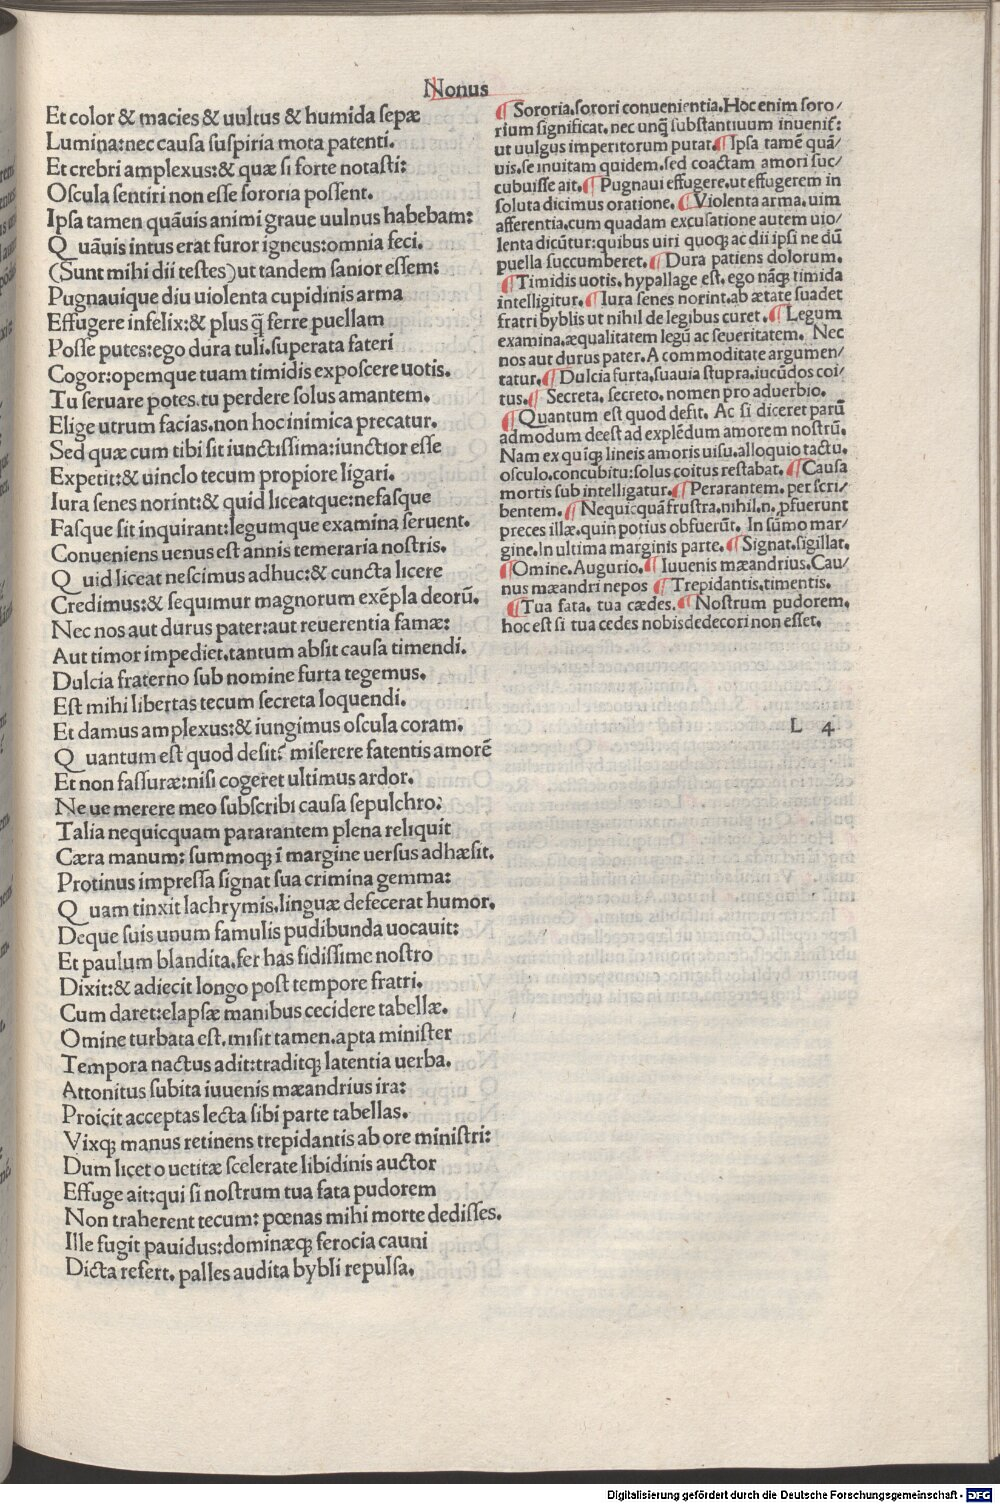 Nonus
Et color & macies & uultus & humida sepæ
Lumina:nec causa suspiria mota patenti.
Et crebri amplexus:& quæ si forte notasti:
Oscula sentiri non esse sororia possent.
Ipsa tamen quãuis animi graue uulnus habebam:
Quãuis intus erat furor igneus:omnia feci.
(Sunt mihi dii testes)ut tandem sanior essem:
Pugnauique diu uiolenta cupidinis arma
Effugere infelix:& plus q̃ ferre puellam
Posse putes:ego dura tuli.superata fateri
Cogor:opemque tuam timidis exposcere uotis.
Tu seruare potes.tu perdere solus amantem.
Elige utrum facias.non hoc inimica precatur.
Sed quæ cum tibi sit iunctissima:iunctior esse
Expetit:& uinclo tecum propiore ligari.
Iura senes norint:& quid liceatque:nefasque
Fasque sit inquirant:legumque examina seruent.
Conueniens uenus est annis temeraria nostris.
Quid liceat nescimus adhuc:& cuncta licere
Credimus:& sequimur magnorum exẽpla deorũ.
Nec nos aut durus pater:aut reuerentia famæ:
Aut timor impediet.tantum absit causa timendi.
Dulcia fraterno sub nomine furta tegemus.
Est mihi libertas tecum secreta loquendi.
Et damus amplexus:& iungimus oscula coram.
Quantum est quod desit? miserere fatentis amorẽ
Et non fassuræ:nisi cogeret ultimus ardor.
Ne ue merere meo subscribi causa sepulchro:
Talia nequicquam pararantem plena reliquit
Cæra manum: summoq; ĩ margine uersus adhæsit.
Protinus impressa signat sua crimina gemma:
Quam tinxit lachrymis.linguæ defecerat humor.
Deque suis unum famulis pudibunda uocauit:
Et paulum blandita.fer has fidissime nostro
Dixit:& adiecit longo post tempore fratri.
Cum daret:elapsæ manibus cecidere tabellæ.
Omine turbata est.misit tamen.apta minister
Tempora nactus adit:traditq; latentia uerba.
Attonitus subita iuuenis mæandrius ira:
Proicit acceptas lecta sibi parte tabellas.
Vixq; manus retinens trepidantis ab ore ministri:
Dum licet o uetitæ scelerate libidinis auctor
Effuge ait:qui si nostrum tua fata pudorem
Non traherent tecum: pœnas mihi morte dedisses.
Ille fugit pauidus:dominæq; ferocia cauni
Dicta refert. palles audita bybli repulsa.
¶ Sororia.sorori conuenientia.Hoc enim soro/
rium significat.nec unq̃ substantiuum inueniť:
ut uulgus imperitorum putat.¶ Ipsa tamẽ quã/
uis.se inuitam quidem.sed coactam amori suc/
cubuisse ait.¶ Pugnaui effugere.ut effugerem in
soluta dicimus oratione. ¶ Violenta arma.uim
afferentia.cum quadam excusatione autem uio/
lenta dicũtur:quibus uiri quoq; ac dii ipsi ne dũ
puella succumberet.¶ Dura patiens dolorum.
¶ Timidis uotis. hypallage est. ego nãq; timida
intelligitur.¶ Iura senes norint.ab ætate suadet
fratri byblis ut nihil de legibus curet.¶ Legum
examina.æqualitatem legũ ac seueritatem. Nec
nos aut durus pater.A commoditate argumen/
tatur.¶ Dulcia furta.suauia stupra.iucũdos coi/
tus.¶ Secreta. secreto. nomen pro aduerbio.
¶ Quantum est quod desit. Ac si diceret parũ
admodum deest ad explẽdum amorem nostrũ.
Nam ex quiq; lineis amoris uisu.alloquio tactu.
osculo.concubitu:solus coitus restabat.¶ Causa
mortis sub intelligatur.¶ Perarantem. per scri/
bentem.¶ Nequicquã frustra.nihil.n.ꝓfuerunt
preces illæ.quin potius obfuerũt. In sũmo mar/
gine.In ultima marginis parte.¶ Signat.sigillat.
¶ Omine. Augurio.¶ Iuuenis mæandrius.Cau/
nus mæandri nepos ¶ Trepidantis.timentis.
¶ Tua fata. tua cædes.¶ Nostrum pudorem.
hoc est si tua cedes nobis dedecori non esset.
L 4
Digitalisierung gefördert durch die Deutsche Forschungsgemeinschaft - DFG